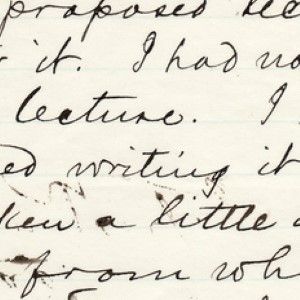 proposed lec
it. I had no
lecture. I
ed writing it
ken a little
from wh